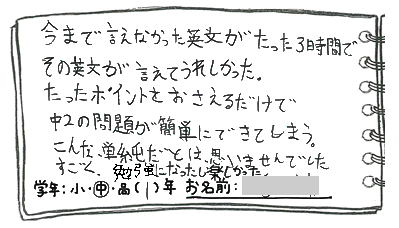 今まで言えなかった英文がたった3時間で
その英文が言えてうれしかった。
たったポイントをおさえるだけで
中2の問題が簡単にできてしまう。
こんなに単純だとは思いませんでした
すごく、勉強になったし楽しかった。
学年:小・中・高(1)年 お名前: